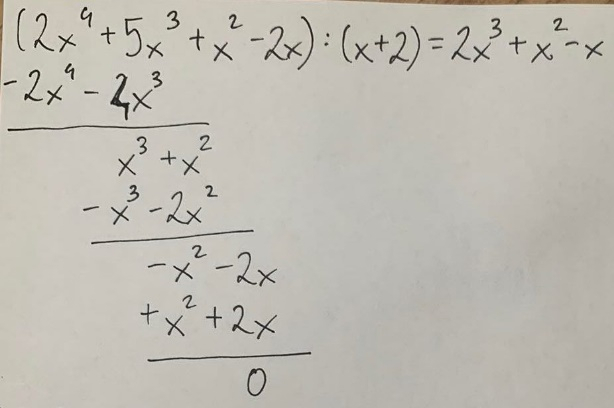 (2x⁴ + 5x³ + x² - 2x) : (x+2) = 2x³ + x² - x
-2x⁴ - 4x³
x³ + x²
-x³ - 2x²
-x² - 2x
+x² + 2x
0